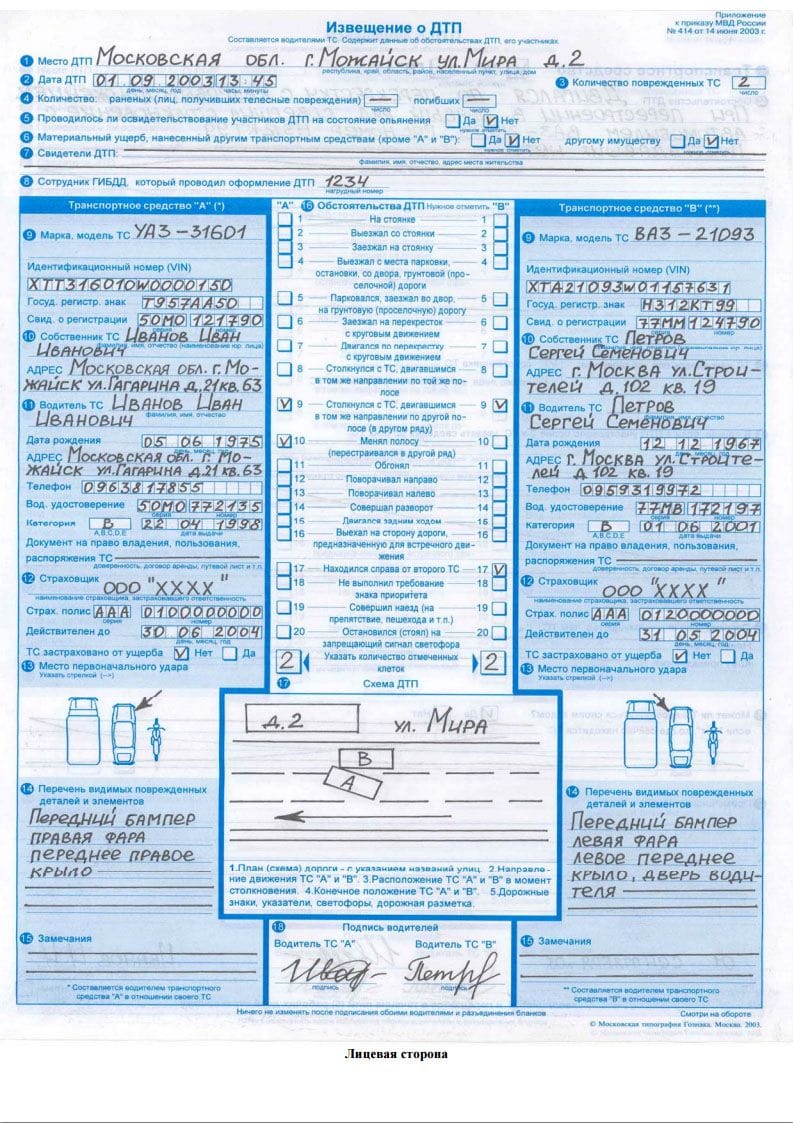 Приложение
к приказу МВД России
№ 414 от 14 июня 2003 г.
Извещение о ДТП
Составляется водителями ТС. Содержит данные об обстоятельствах ДТП, его участниках.
1 Место ДТП Московская обл. г. Можайск ул. Мира д. 2
республика, край, область, район, населенный пункт, улица, дом
2 Дата ДТП 01 09 2003 13:45
день, месяц, год часы, минуты
3 Количество поврежденных ТС 2
число
4 Количество: раненых (лиц, получивших телесные повреждения) — погибших —
число число
5 Проводилось ли освидетельствование участников ДТП на состояние опьянения Да V Нет
нужное отметить
6 Материальный ущерб, нанесенный другим транспортным средствам (кроме "А" и "В"): Да V Нет другому имуществу Да V Нет
нужное отметить нужное отметить
7 Свидетели ДТП:
фамилия, имя, отчество, адрес места жительства
8 Сотрудник ГИБДД, который проводил оформление ДТП 1234
нагрудный номер
Транспортное средство "А" (*)
9 Марка, модель ТС УАЗ-31601
Идентификационный номер (VIN)
XTT316010W0000150
Госуд. регистр. знак Т957АА50
Свид. о регистрации 50МО 121790
серия номер
10 Собственник ТС Иванов Иван
Иванович
фамилия, имя, отчество (наименование юр. лица)
АДРЕС Московская обл. г. Мо-
жайск ул. Гагарина д. 21 кв. 63
11 Водитель ТС Иванов Иван
Иванович
фамилия, имя, отчество
Дата рождения 05 06 1975
день, месяц, год
АДРЕС Московская обл. г. Мо-
жайск ул. Гагарина д. 21 кв. 63
Телефон 0963817855
Вод. удостоверение 50МО 772135
серия номер
Категория В 22 04 1998
A,B,C,D,E дата выдачи
Документ на право владения, пользования,
распоряжения ТС
доверенность, договор аренды, путевой лист и т.п.
12 Страховщик ООО "ХХХХ"
наименование страховщика, застраховавшего ответственность
Страх. полис ААА 0100000000
серия номер
Действителен до 30 06 2004
день, месяц, год
ТС застраховано от ущерба V Нет Да
13 Место первоначального удара
Указать стрелкой (-->)
14 Перечень видимых поврежденных
деталей и элементов
Передний бампер
правая фара
переднее правое
крыло
15 Замечания
* Составляется водителем транспортного
средства "А" в отношении своего ТС
"А" 16 Обстоятельства ДТП Нужное отметить "В"
1 На стоянке 1
2 Выезжал со стоянки 2
3 Заезжал на стоянку 3
4 Выезжал с места парковки, 4
остановки, со двора, грунтовой (про-
селочной) дороги
5 Парковался, заезжал во двор, 5
на грунтовую (проселочную) дорогу
6 Заезжал на перекресток 6
с круговым движением
7 Двигался по перекрестку 7
с круговым движением
8 Столкнулся с ТС, двигавшимся 8
в том же направлении по той же по-
лосе
V 9 Столкнулся с ТС, двигавшимся 9 V
в том же направлении по другой по-
лосе (в другом ряду)
V 10 Менял полосу 10
(перестраивался в другой ряд)
11 Обгонял 11
12 Поворачивал направо 12
13 Поворачивал налево 13
14 Совершал разворот 14
15 Двигался задним ходом 15
16 Выехал на сторону дороги, 16
предназначенную для встречного дви-
жения
17 Находился справа от второго ТС 17 V
18 Не выполнил требование 18
знака приоритета
19 Совершил наезд (на 19
препятствие, пешехода и т.п.)
20 Остановился (стоял) на 20
запрещающий сигнал светофора
2 Указать количество отмеченных 2
клеток
17 Схема ДТП
д. 2 ул. Мира
В
А
1.План (схема) дороги - с указанием названий улиц. 2.Направле-
ние движения ТС "А" и "В". 3.Расположение ТС "А" и "В" в момент
столкновения. 4.Конечное положение ТС "А" и "В". 5.Дорожные
знаки, указатели, светофоры, дорожная разметка.
18 Подпись водителей
Водитель ТС "А" Водитель ТС "В"
Петров
подпись подпись
Транспортное средство "В" (**)
9 Марка, модель ТС ВАЗ-21093
Идентификационный номер (VIN)
XTA21093W01157631
Госуд. регистр. знак Н312КТ99
Свид. о регистрации 77ММ 124790
серия номер
10 Собственник ТС Петров
Сергей Семенович
фамилия, имя, отчество (наименование юр. лица)
АДРЕС г. Москва ул. Строи-
телей д. 102 кв. 19
11 Водитель ТС Петров
Сергей Семенович
фамилия, имя, отчество
Дата рождения 12 12 1967
день, месяц, год
АДРЕС г. Москва ул. Строите-
лей д 102 кв. 19
Телефон 0959319972
Вод. удостоверение 77МВ 172197
серия номер
Категория В 01 06 2001
A,B,C,D,E дата выдачи
Документ на право владения, пользования,
распоряжения ТС
доверенность, договор аренды, путевой лист и т.п.
12 Страховщик ООО "ХХХХ"
наименование страховщика, застраховавшего ответственность
Страх. полис ААА 0120000000
серия номер
Действителен до 31 05 2004
день, месяц, год
ТС застраховано от ущерба V Нет Да
13 Место первоначального удара
Указать стрелкой (-->)
14 Перечень видимых поврежденных
деталей и элементов
Передний бампер
левая фара
левое переднее
крыло, дверь води-
теля
15 Замечания
** Составляется водителем транспортного
средства "В" в отношении своего ТС
Ничего не изменять после подписания обоими водителями и разъединения бланков
Смотри на обороте
© Московская типография Гознака. Москва. 2003.
Лицевая сторона